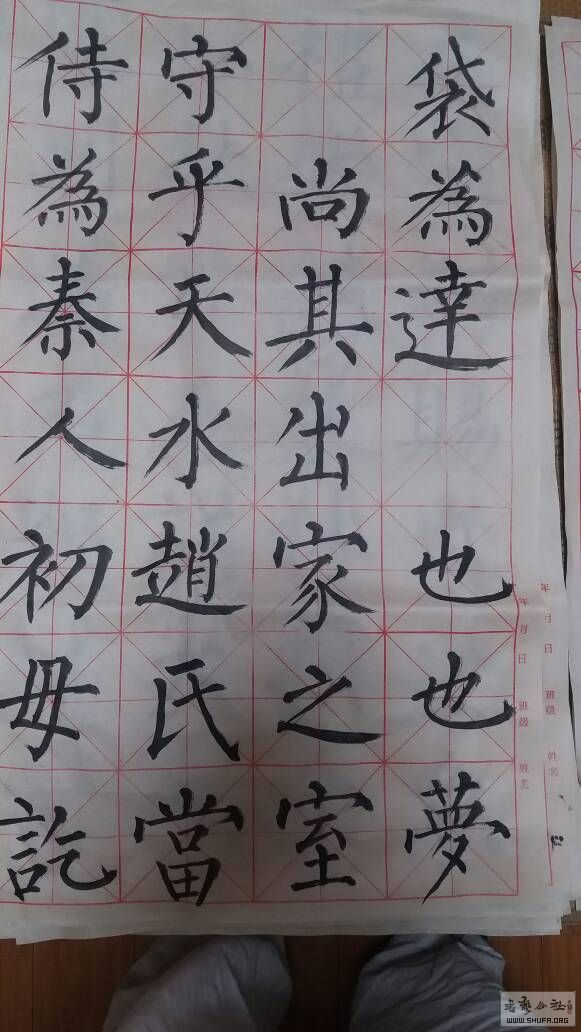 袋為達也也夢
尚其出家之室
守乎天水趙氏當
侍為秦人初毋訖
年 月 日 班级 姓名
年 月 日 班级 姓名
书艺公社
WWW.SHUFA.ORG